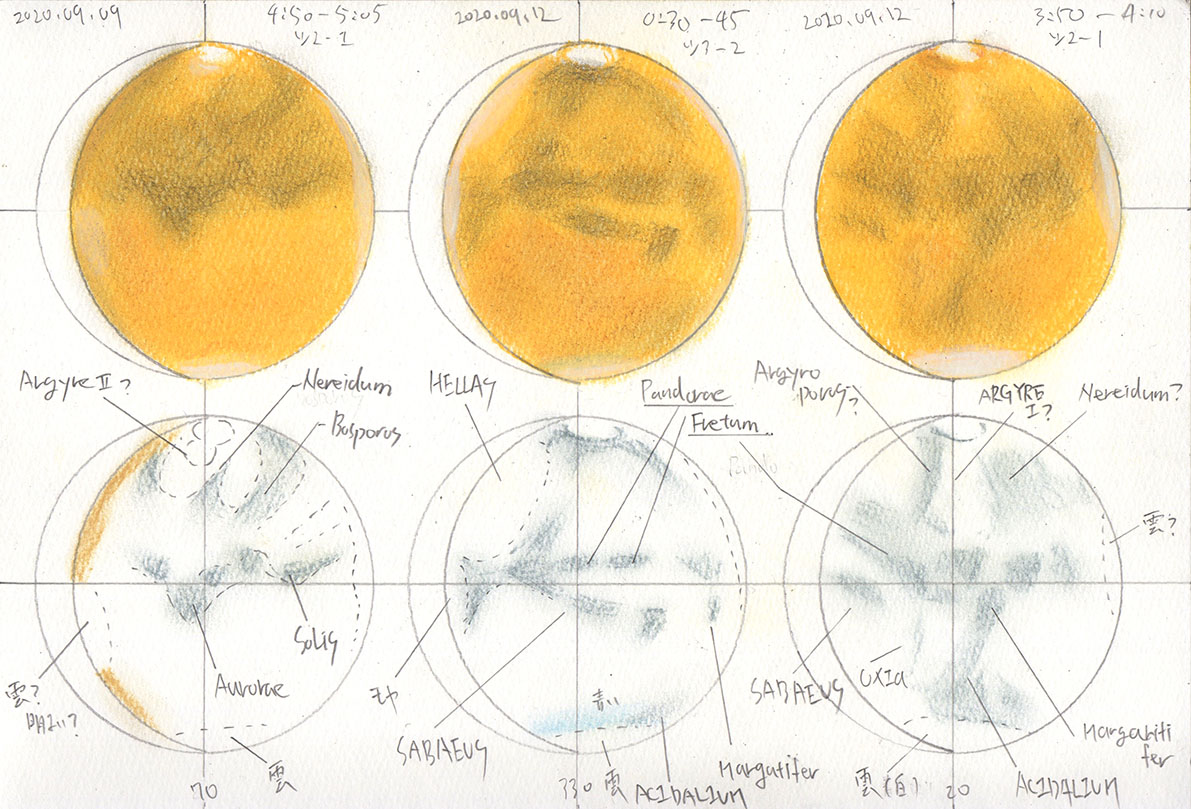 2020.09.09
4:50-5:05
2020.09.12
0:30-45
2020.09.12
3:50-4:10
Argyre II?
Nereidum
Bosporus
HELLAS
Pandorae
Fretum
Argyro
porus?
ARGYRE
I?
Nereidum?
雲?
Solis
Aurorae
雲?
明るい?
雲
70
モヤ
SABAEUS
青い
330
雲
ACIDALIUM
Margatifer
SABAEUS
OXIA
雲(白)
20
Margariti
fer
ACIDALIUM